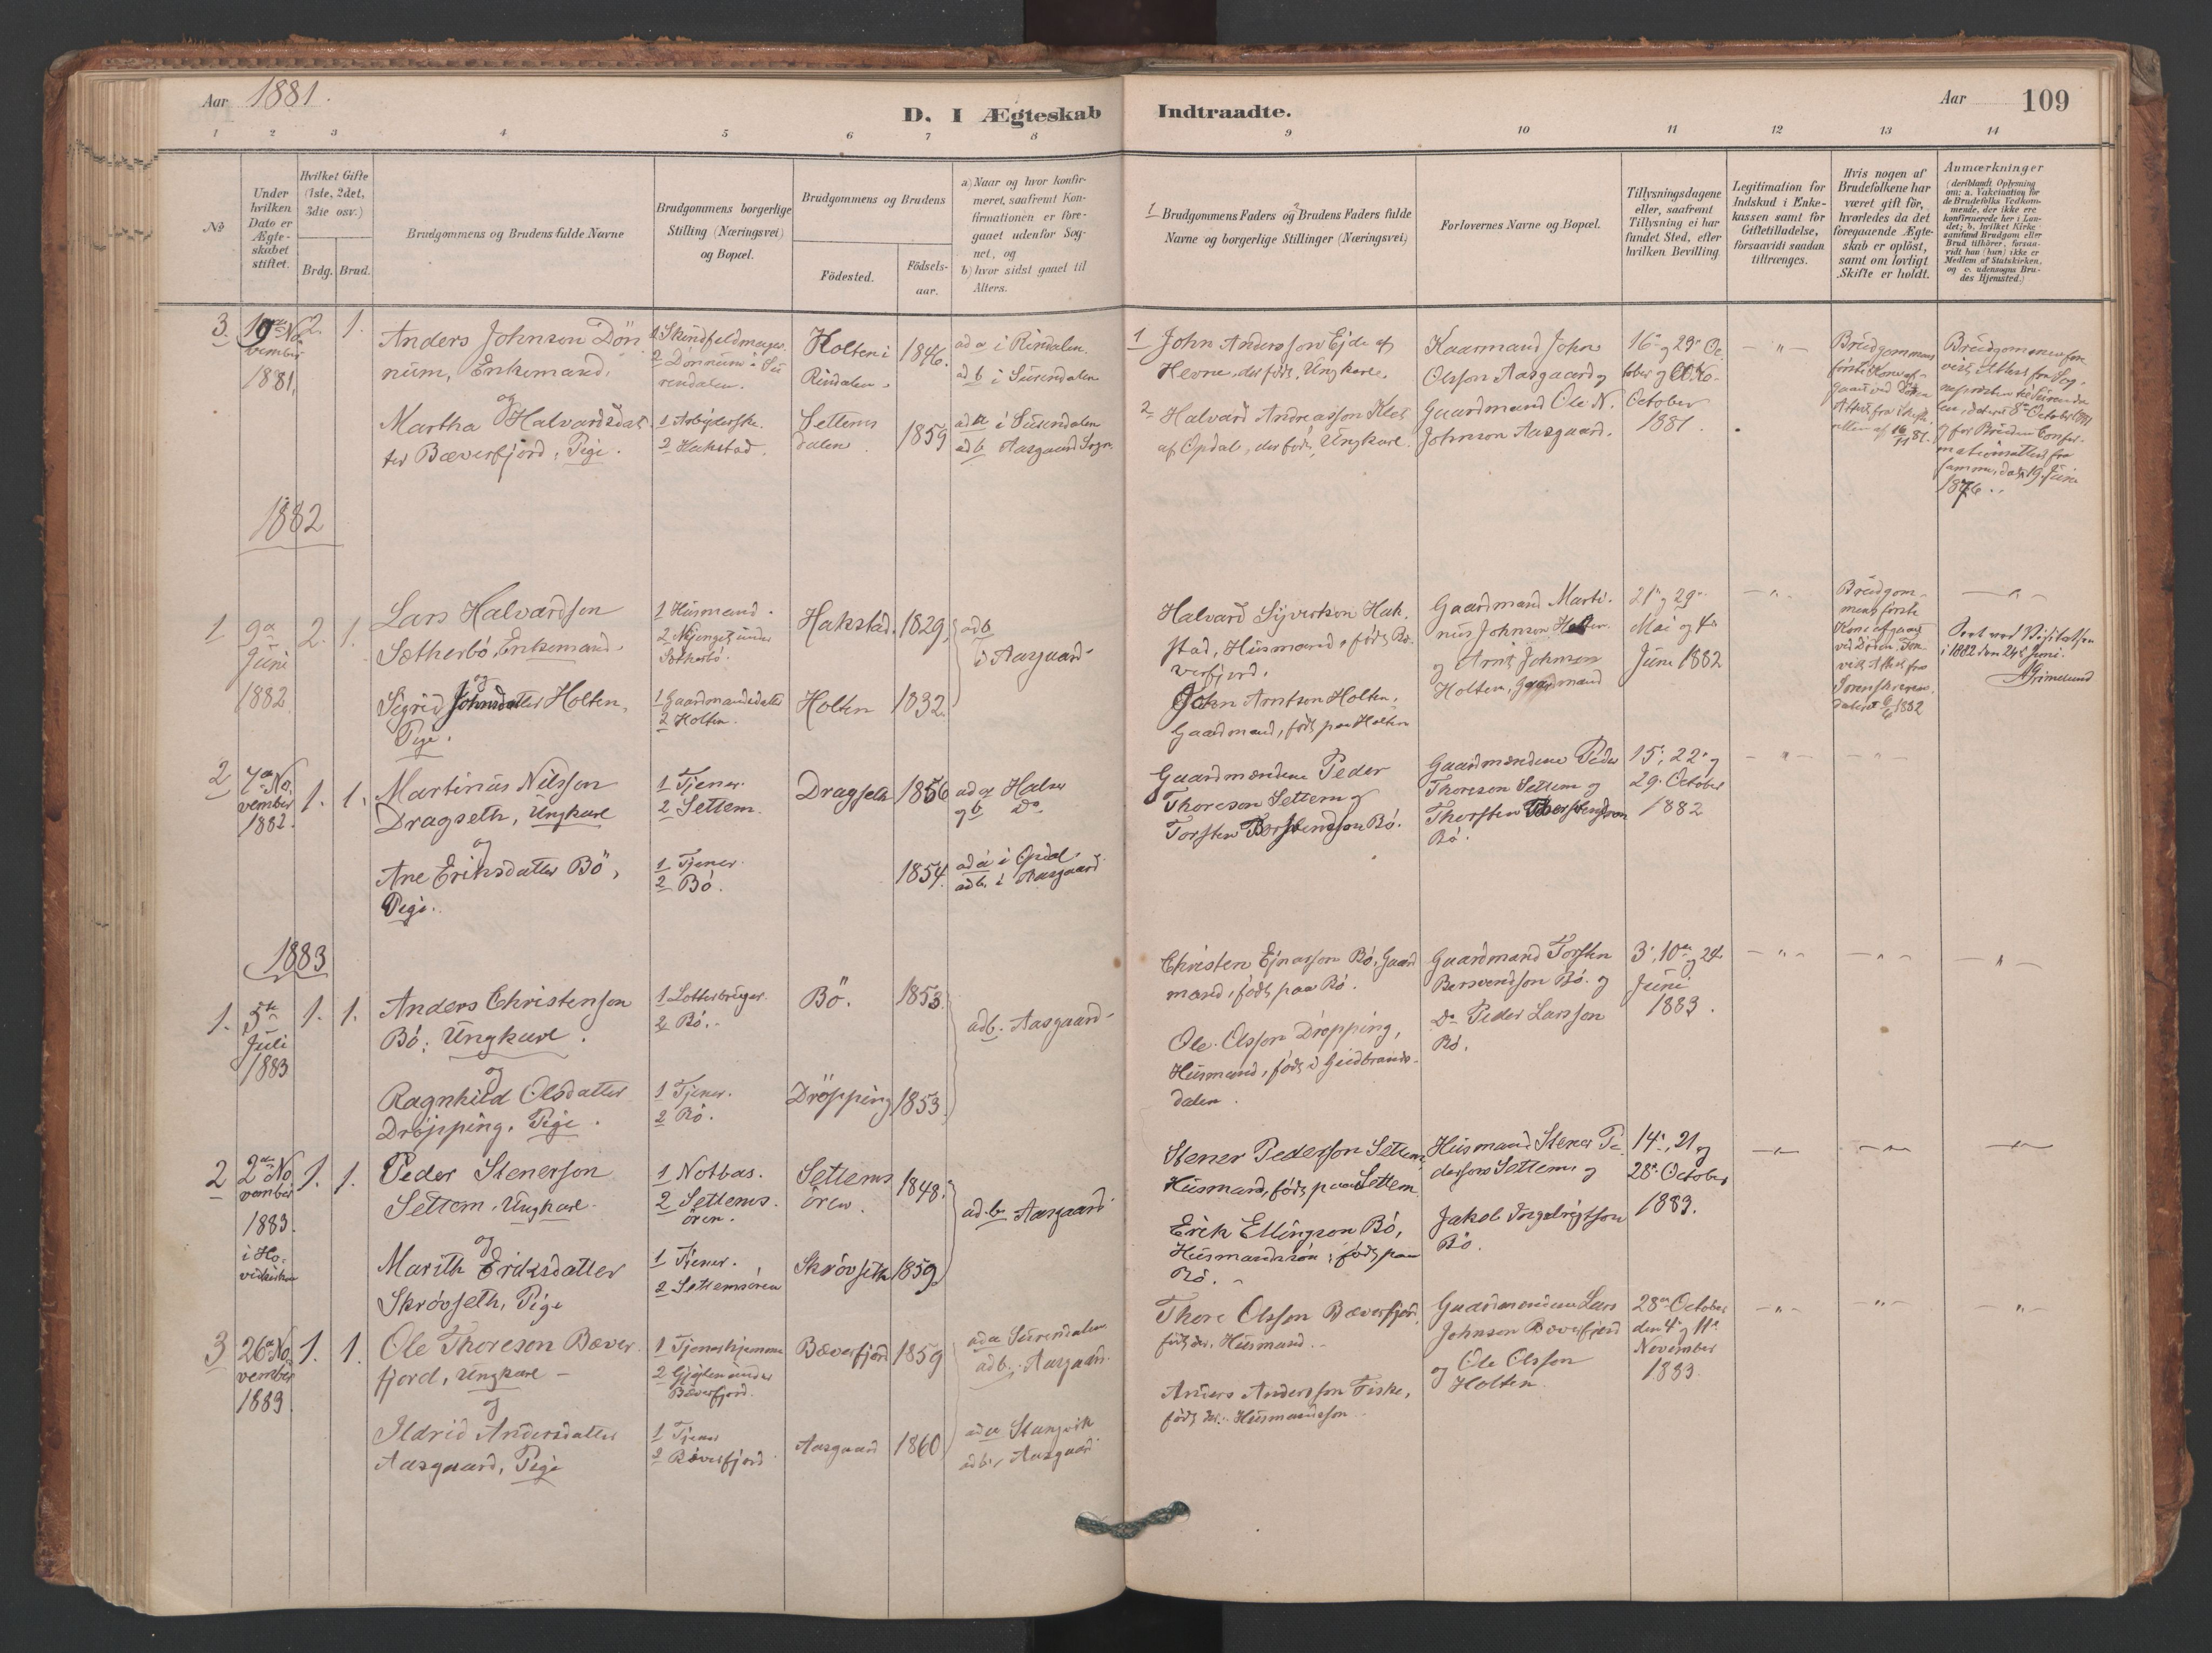 Aar 1881.
D. I Ægteskab Indtraadte.
Aar 109
1 2 3 4 5 6 7 8 9 10 11 12 13 14
No
Under hvilken Dato er Ægte-skabet stiftet.
Hvilket Gifte (1ste, 2det, 3die osv.)
Brdg. Brud.
Brudgommens og Brudens fulde Navne
Brudgommens borgerlige Stilling (Næringsvei) og Bopæl.
Brudgommens og Brudens
Födested.
Födsels-aar.
a) Naar og hvor konfir-meret, saafremt Kon-firmationen er fore-gaaet udenfor Sog-net, og
b) hvor sidst gaaet til Alters.
1 Brudgommens Faders og 2 Brudens Faders fulde Navne og borgerlige Stillinger (Næringsvei)
Forlovernes Navne og Bopæl.
Tillysningsdagene eller, saafremt Tillysning ei har fundet Sted, efter hvilken Bevilling.
Legitimation for Indskud i Enke-kassen samt for Giftetilladelse, forsaavidt saadan tiltrænges.
Hvis nogen af Brudefolkene har været gift för, hvorledes da det foregaaende Ægte-skab er oplöst, samt om lovligt Skifte er holdt.
Anmærkninger (deriblandt Oplysning om: a. Vakcination for de Brudefolks Vedkom-mende, der ikke ere konfirmerede her i Lan-det; b. hvilket Kirke-samfund Brudgom eller Brud tilhörer, forsaa-vidt han (hun) ikke er Medlem af Statskirken, og c. udensogns Bru-des Hjemsted.)
3. 10de No
vember
1881.
2. 1.
Anders Johnson Dön
num, Enkemand.
og
Martha Halvardsdat
ter Bæverfjord, Pige.
1 Skindfeldmager
2 Dönnum i Su
rendalen.
1 Arbejderske.
2 Hakstad.
Holten i
Rindalen.
1846.
Settems
dalen
1859
ad a i Rindalen.
ad b i Surendalen
ad a i Surendalen
ad b Aasgaard Sogn.
1 John Andersson Ejde af
Hevne, der födt, Ungkarl.
2 Halvard Andreasson Klev
af Opdal, der födt, Ungkarl.
Kaarmand John
Olsson Aasgaard og
Gaardmand Ole N.
Johnson Aasgaard.
16de og 23de Oc
tober og
October
1881.
- " -
Brudgommens
förste Kone af-
gaaet ved Döden
Brudgommen fore
vist Attest fra Sog
nepresten til Surenda
len, dateret 8de October 1881
og for Bruden Confir-
mationsattest fra
samme, dat. 19. Juni
1876.
1882
1 9de
Juni
1882
2. 1.
Lars Halvardson
Sætherbö, Enkemand.
og
Sigrid Johnsdatter Holten,
Pige.
1 Husmand.
2 under
Sætherbö.
1 Gaardmandsdatter
2 Holten.
Hakstad.
1829.
Holten
1832.
ad b
i Aasgaard
Halvard Syvertson Hak
stad, Husmand, födt Bæ
verfjord.
John Arntson Holten.
Gaardmand, födt paa Holten
Gaardmand Marti
nus Johnson Holten
og Arnt Johnson
Holten, Gaardmand
21de og 29de
Mai og 4de
Juni 1882
- " -
Brudgom-
mens förste
Kone afgaaet
ved Döden. Fore
vist Attest fra
Sorenskriveren,
dateret 9/6 1882
- " -
Seet ved Visitatsen
i 1882 den 24de Juni.
AGrimelund
2 7de No
vember
1882.
1. 1.
Martinus Nilsson
Dragseth, Ungkarl
og
Ane Eriksdatter Bö,
Pige.
1 Tjener.
2 Settem.
1 Tjener.
2 Bö.
Dragseth
1856
1854.
ad a Halse
og b Do
ad a i Opdal.
ad b. i Aasgaard
Gaardmændene Peder
Thoreson Settem og
Torsten Torstendson Bö.
Gaardmændene Peder
Thoreson Settem og
Thorsten Thorstensson
Bö.
15de, 22de og
29de October
1882
- " -
- " -
1883
1. 5te
Juli
1883
1. 1.
Anders Christenson
Bö, Ungkarl.
og
Ragnhild Olsdatter
Dröpping, Pige.
1 Lottersbruger.
2 Bö.
1 Tjener.
2 Bö.
Bö.
1853.
Dröpping
1853.
ad b. Aasgaard
Christen Ejnarson Bö, Gaard
mand, födt paa Bö.
Ole Olsson Dröpping,
Husmand, födt i Gudbrands-
dalen.
Gaardmand Torsten
Bersvendson Bö. og
Do Peder Larsson
Bö.
3de, 10de og 24de
Juni
1883.
- " -
- " -
- " -
2 2den No
vember
1883.
i Ho-
vedkirken
1. 1.
Peder Stenerson
Settem, Ungkarl.
og
Marith Eriksdatter
Skrövseth, Pige
1 Notbas.
2 Settems
ören.
1 Tjener.
2 Settemsören
Settems
ören.
1848.
Skrövseth
1859
ad b. Aasgaard.
Stener Pedersson Settem,
Husmand, födt paa Settem.
Erik Ellingson Bö,
Husmandssön, födt paa
Bö.
Husmand Stener Pe
dersson Settem og
Jakob Ingebrigtson
Bö.
14de, 21 og
28de October
1883.
- " -
- " -
- " -
3 26de No
vember
1883.
1. 1.
Ole Thoreson Bæver
fjord, Ungkarl
og
Ildrid Andersdatter
Aasgaard, Pige
1 Tjener hjemme
2 under
Bæverfjord.
1 Tjener
2 Bæverfjord
Bæverfjord
1859
Aasgaard
1860
ad a Surendalen
ad b. Aasgaard.
ad a Stangvik
ad b. Aasgaard
Thore Olsson Bæverfjord,
födt der. Husmand.
Anders Andersson Fiske,
födt der. Husmandsson
Gaardmændene Lars
Johnson Bæverfjord
og Ole Olsson
Holten.
28de October
den 4de og 11te
November
1883.
- " -
- " -
- " -